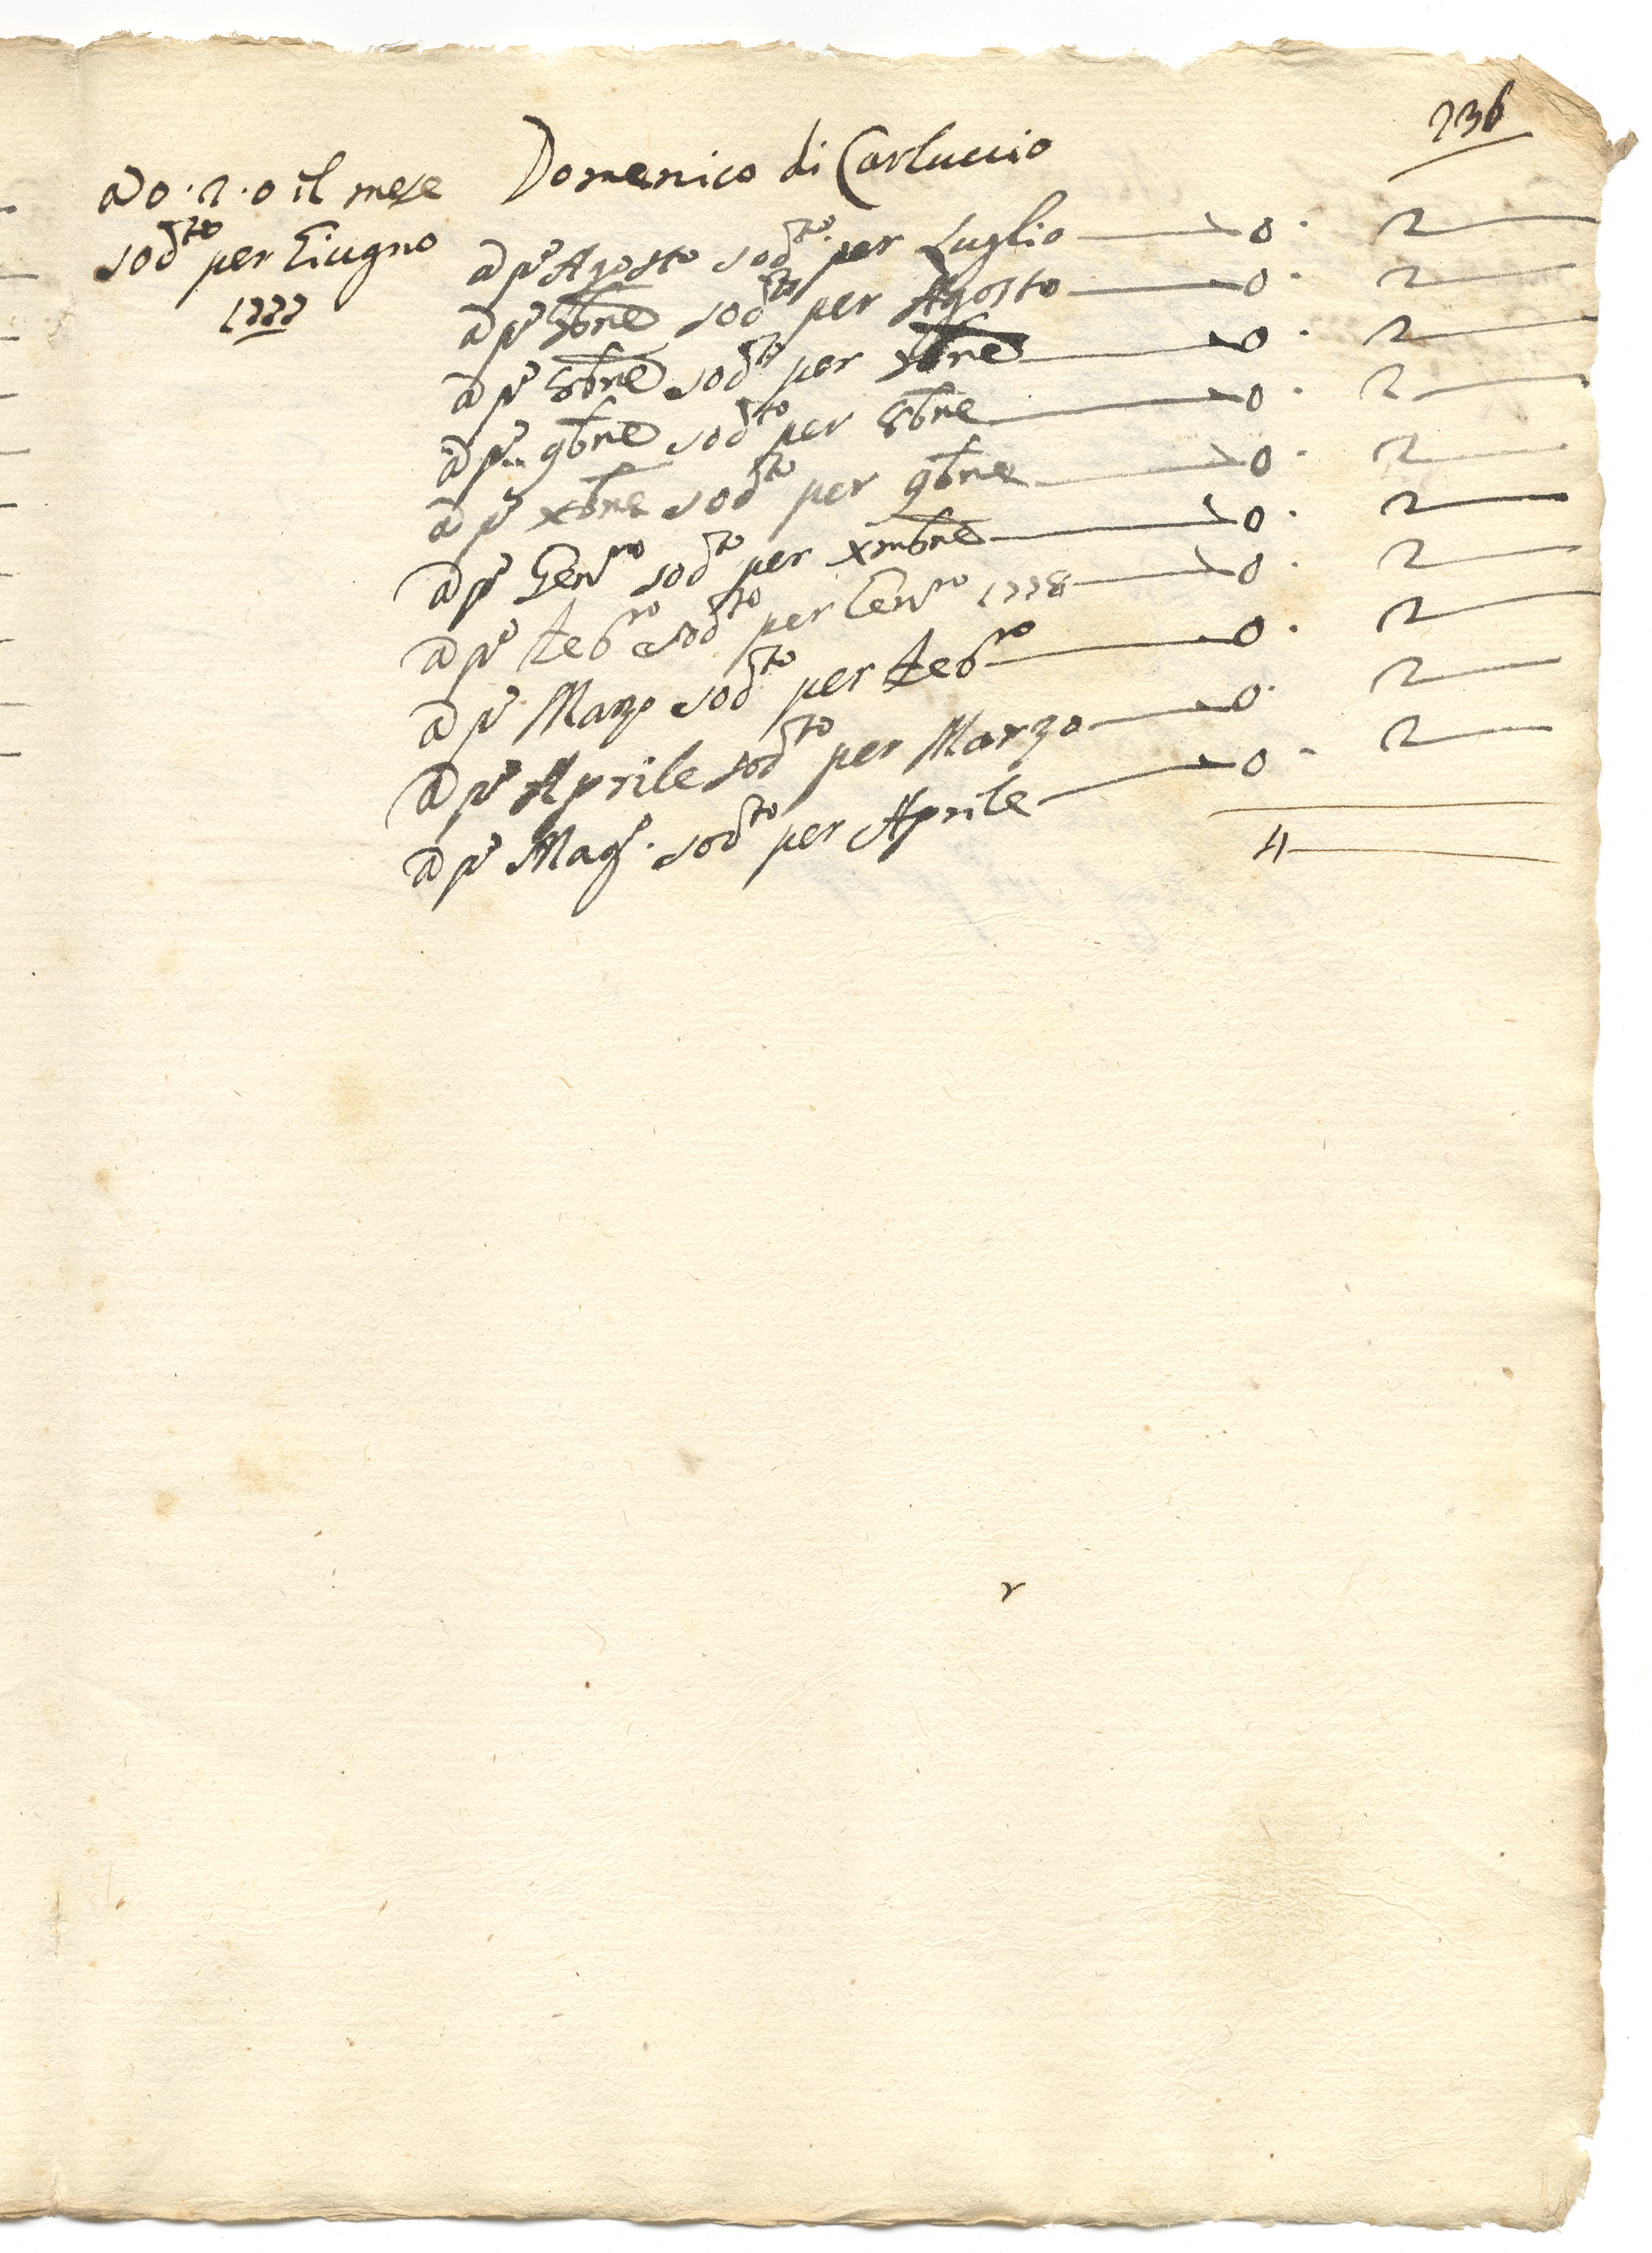 236
Domenico di Carluccio
a D 0. 2. 0 il mese
sod.to per Giugno
1777
a p.º Agosto sod.to per Luglio — 0. 2 —
a p.º 7bre sod.to per Agosto — 0. 2 —
a p.º 8bre sod.to per 7bre — 0. 2 —
a p.º 9bre sod.to per 8bre — 0. 2 —
a p.º xbre sod.to per 9bre — 0. 2 —
a p.º Gen.ro sod.to per xmbre — 0. 2 —
a p.º feb.ro sod.to per Gen.ro 1778 — 0. 2 —
a p.º Marzo sod.to per feb.ro — 0. 2 —
a p.º Aprile sod.to per Marzo — 0. 2 —
a p.º Mag.º sod.to per Aprile — 0. 2 —